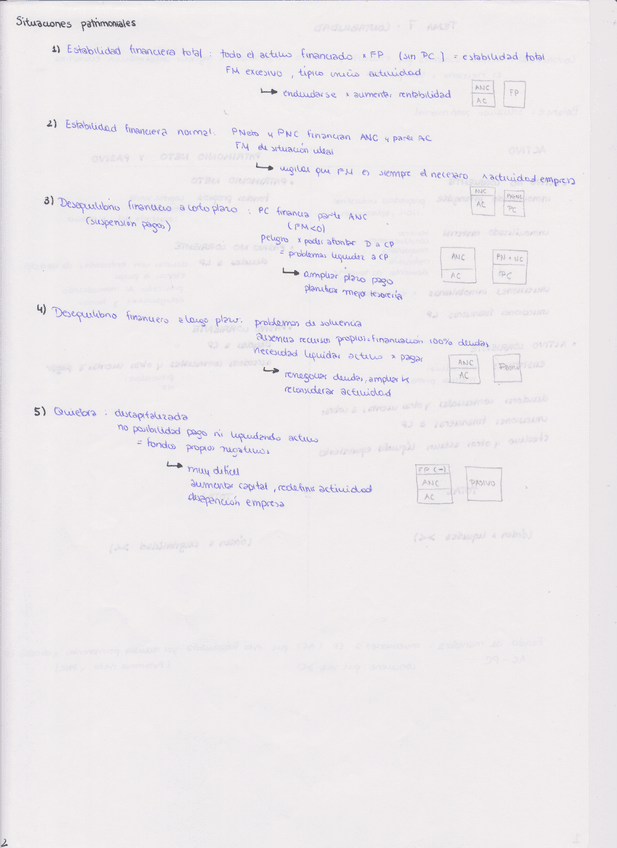 Situaciones patrimoniales
1) Estabilidad financiera total: todo el activo financiado x FP (sin PC) = estabilidad total
FM excesivo, típico inicio actividad
↳ endeudarse x aumentar rentabilidad
ANC
AC
FP
2) Estabilidad financiera normal: PNeto y PNC financian ANC y parte AC
FM de situación ideal
↳ vigilar que FM es siempre el necesario x actividad empresa
ANC
AC
PC
3) Desequilibrio financiero a corto plazo: PC financia parte ANC
(suspensión pagos) (FM<0)
peligro x poder afrontar D a CP
= problemas liquidez a CP
↳ ampliar plazo pago
planificar mejor tesorería
ANC
AC
4) Desequilibrio financiero a largo plazo: problemas de solvencia
ausencia recursos propios = financiación 100% deudas
necesidad liquidar activo x pagar
↳ renegociar deudas, ampliar K
reconsiderar actividad
ANC
AC
Pasivo
5) Quiebra: descapitalizada
no posibilidad pago ni liquidando activo
= fondos propios negativos
↳ muy difícil
aumentar capital, redefinir actividad
desaparición empresa
FP (-)
ANC
AC
PASIVO
2